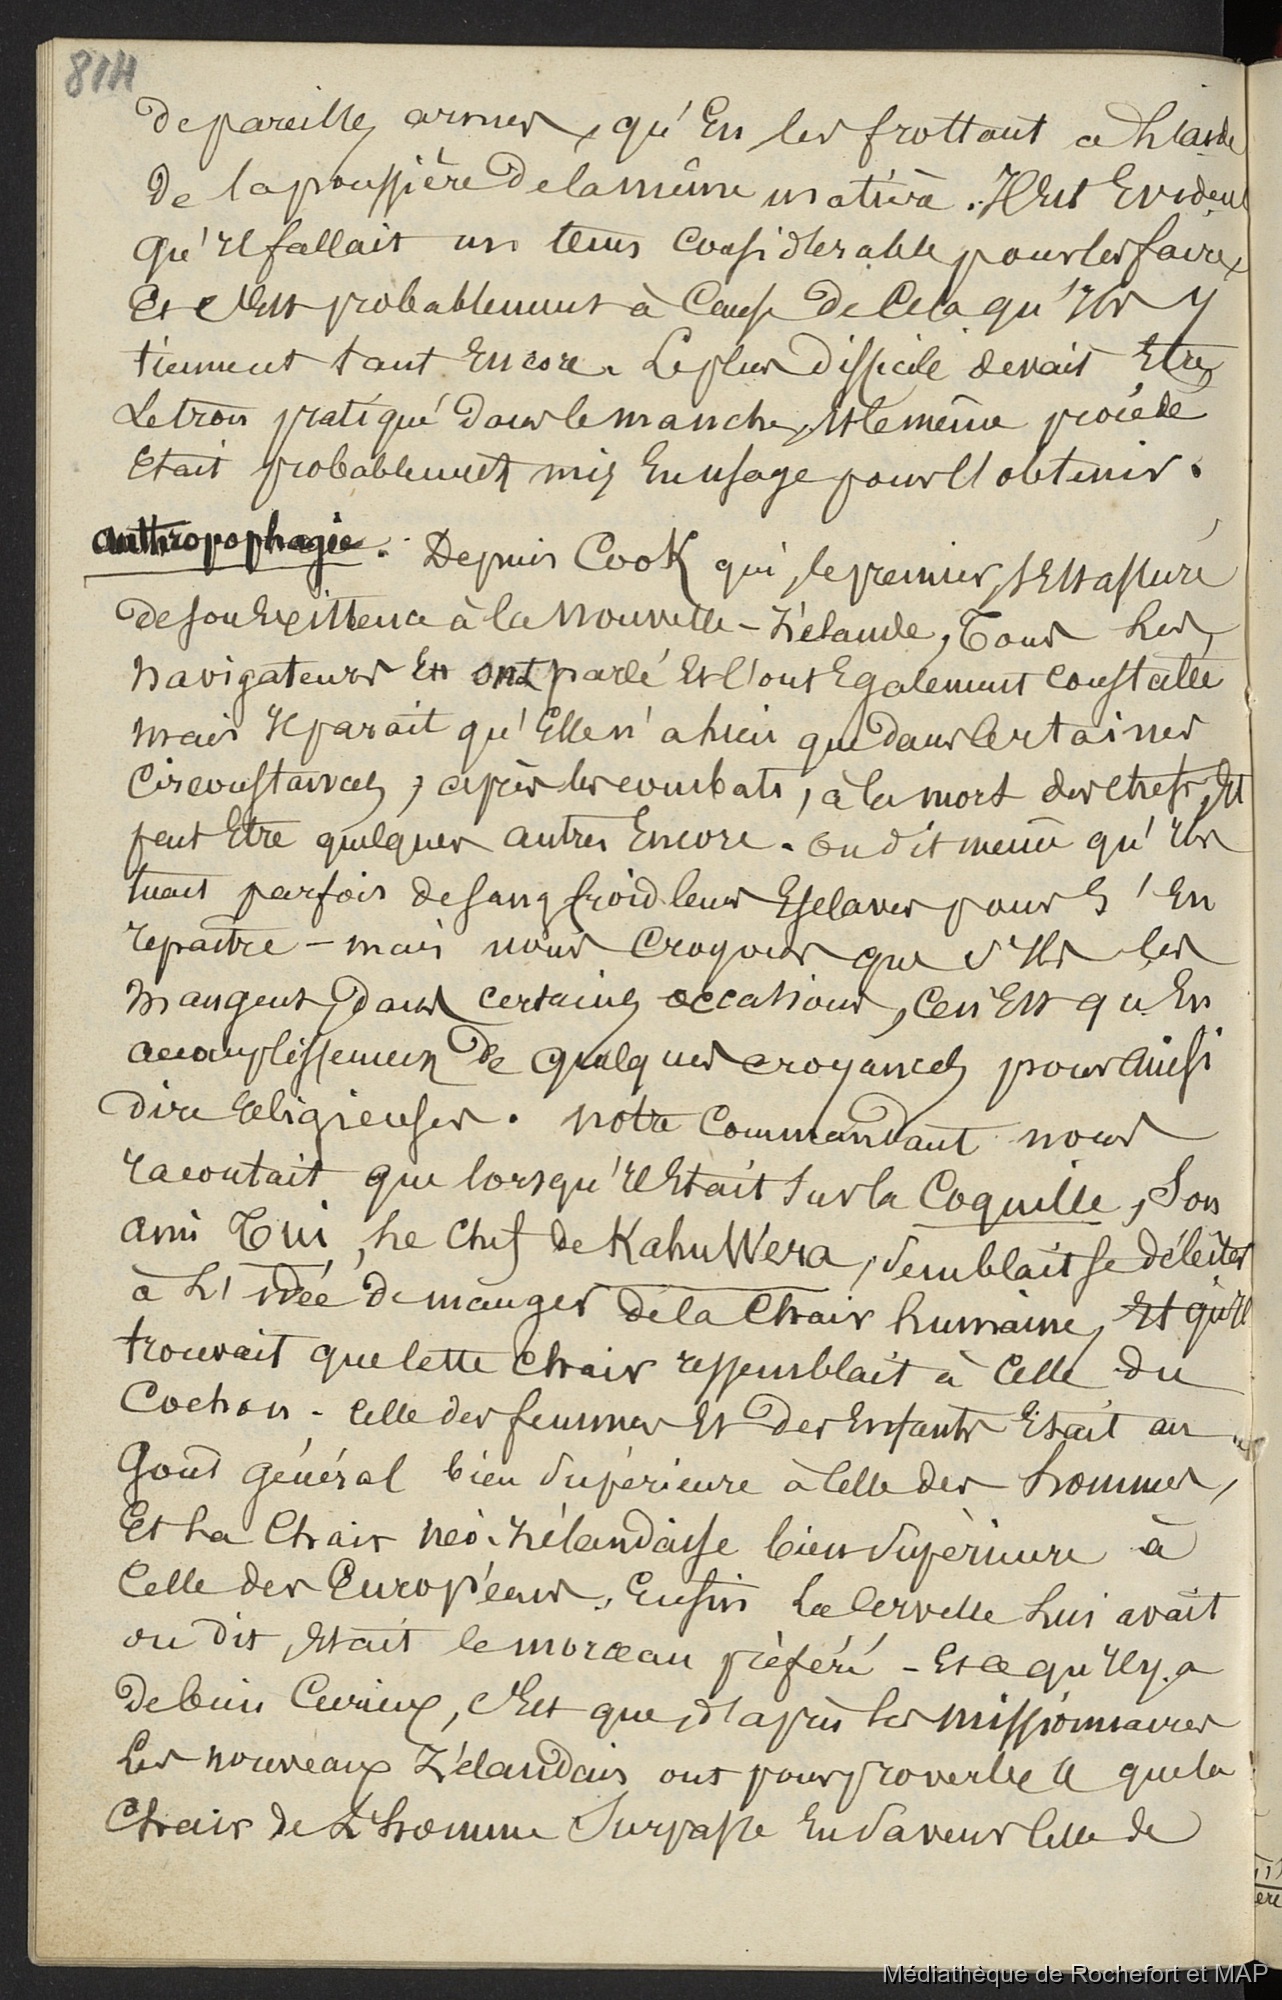 814
de pareilles armes, qu'En les frottant a L'aide
de la poussière de la même matière. Il Est Evident
qu'Il fallait un tems considerable pour les faire,
Et c'Est probablement à Cause de Cela qu'Ils y
tiennent tant Encore. Le plus difficile devait Etre
Le trou pratiqué dans le manche, Et le même procédé
Etait probablement mis En usage pour l'obtenir.
anthropophagie. Depuis Cook qui, le premier, s'Est assuré
de son Existence à la Nouvelle-Zélande, Tous Les
Navigateurs En ont parlé Et l'ont Egalement constatée
mais Il parait qu'Elle n'a lieu que dans Certaines
Circonstances, après les combats, à la mort des chefs, Et
peut Etre quelques autres Encore. On dit meme qu'Ils
tuent parfois de sang froid leurs Esclaves pour S'En
repaitre - mais nous Croyons que s'Ils les
mangent, dans certaines occasions, Ce n'Est qu'En
accomplissement de quelques croyances pour ainsi
dire Religieuses. Notre Commandant nous
racontait que lorsqu'Il Etait Sur la Coquille, Son
ami Tui, Le Chef de KahuWera, Semblait se délecter
à L'Idée de manger de la Chair humaine, Et qu'Il
trouvait que Cette Chair ressemblait à Celle du
Cochon. Celle des femmes Et des Enfants Etait au
Goût Général bien Supérieure à Celle des hommes,
Et La Chair néo-Zélandaise bien Supérieure à
Celle des Européens. Enfin La Cervelle Lui avait
on dit, Etait le morceau préféré - Et ce qu'Il y a
de bien Curieux, c'Est que, d'après les missionnaires
Les nouveaux Zélandais ont pour proverbe que la
Chair de L'homme Surpasse En Saveur Celle de
Médiathèque de Rochefort et MAP